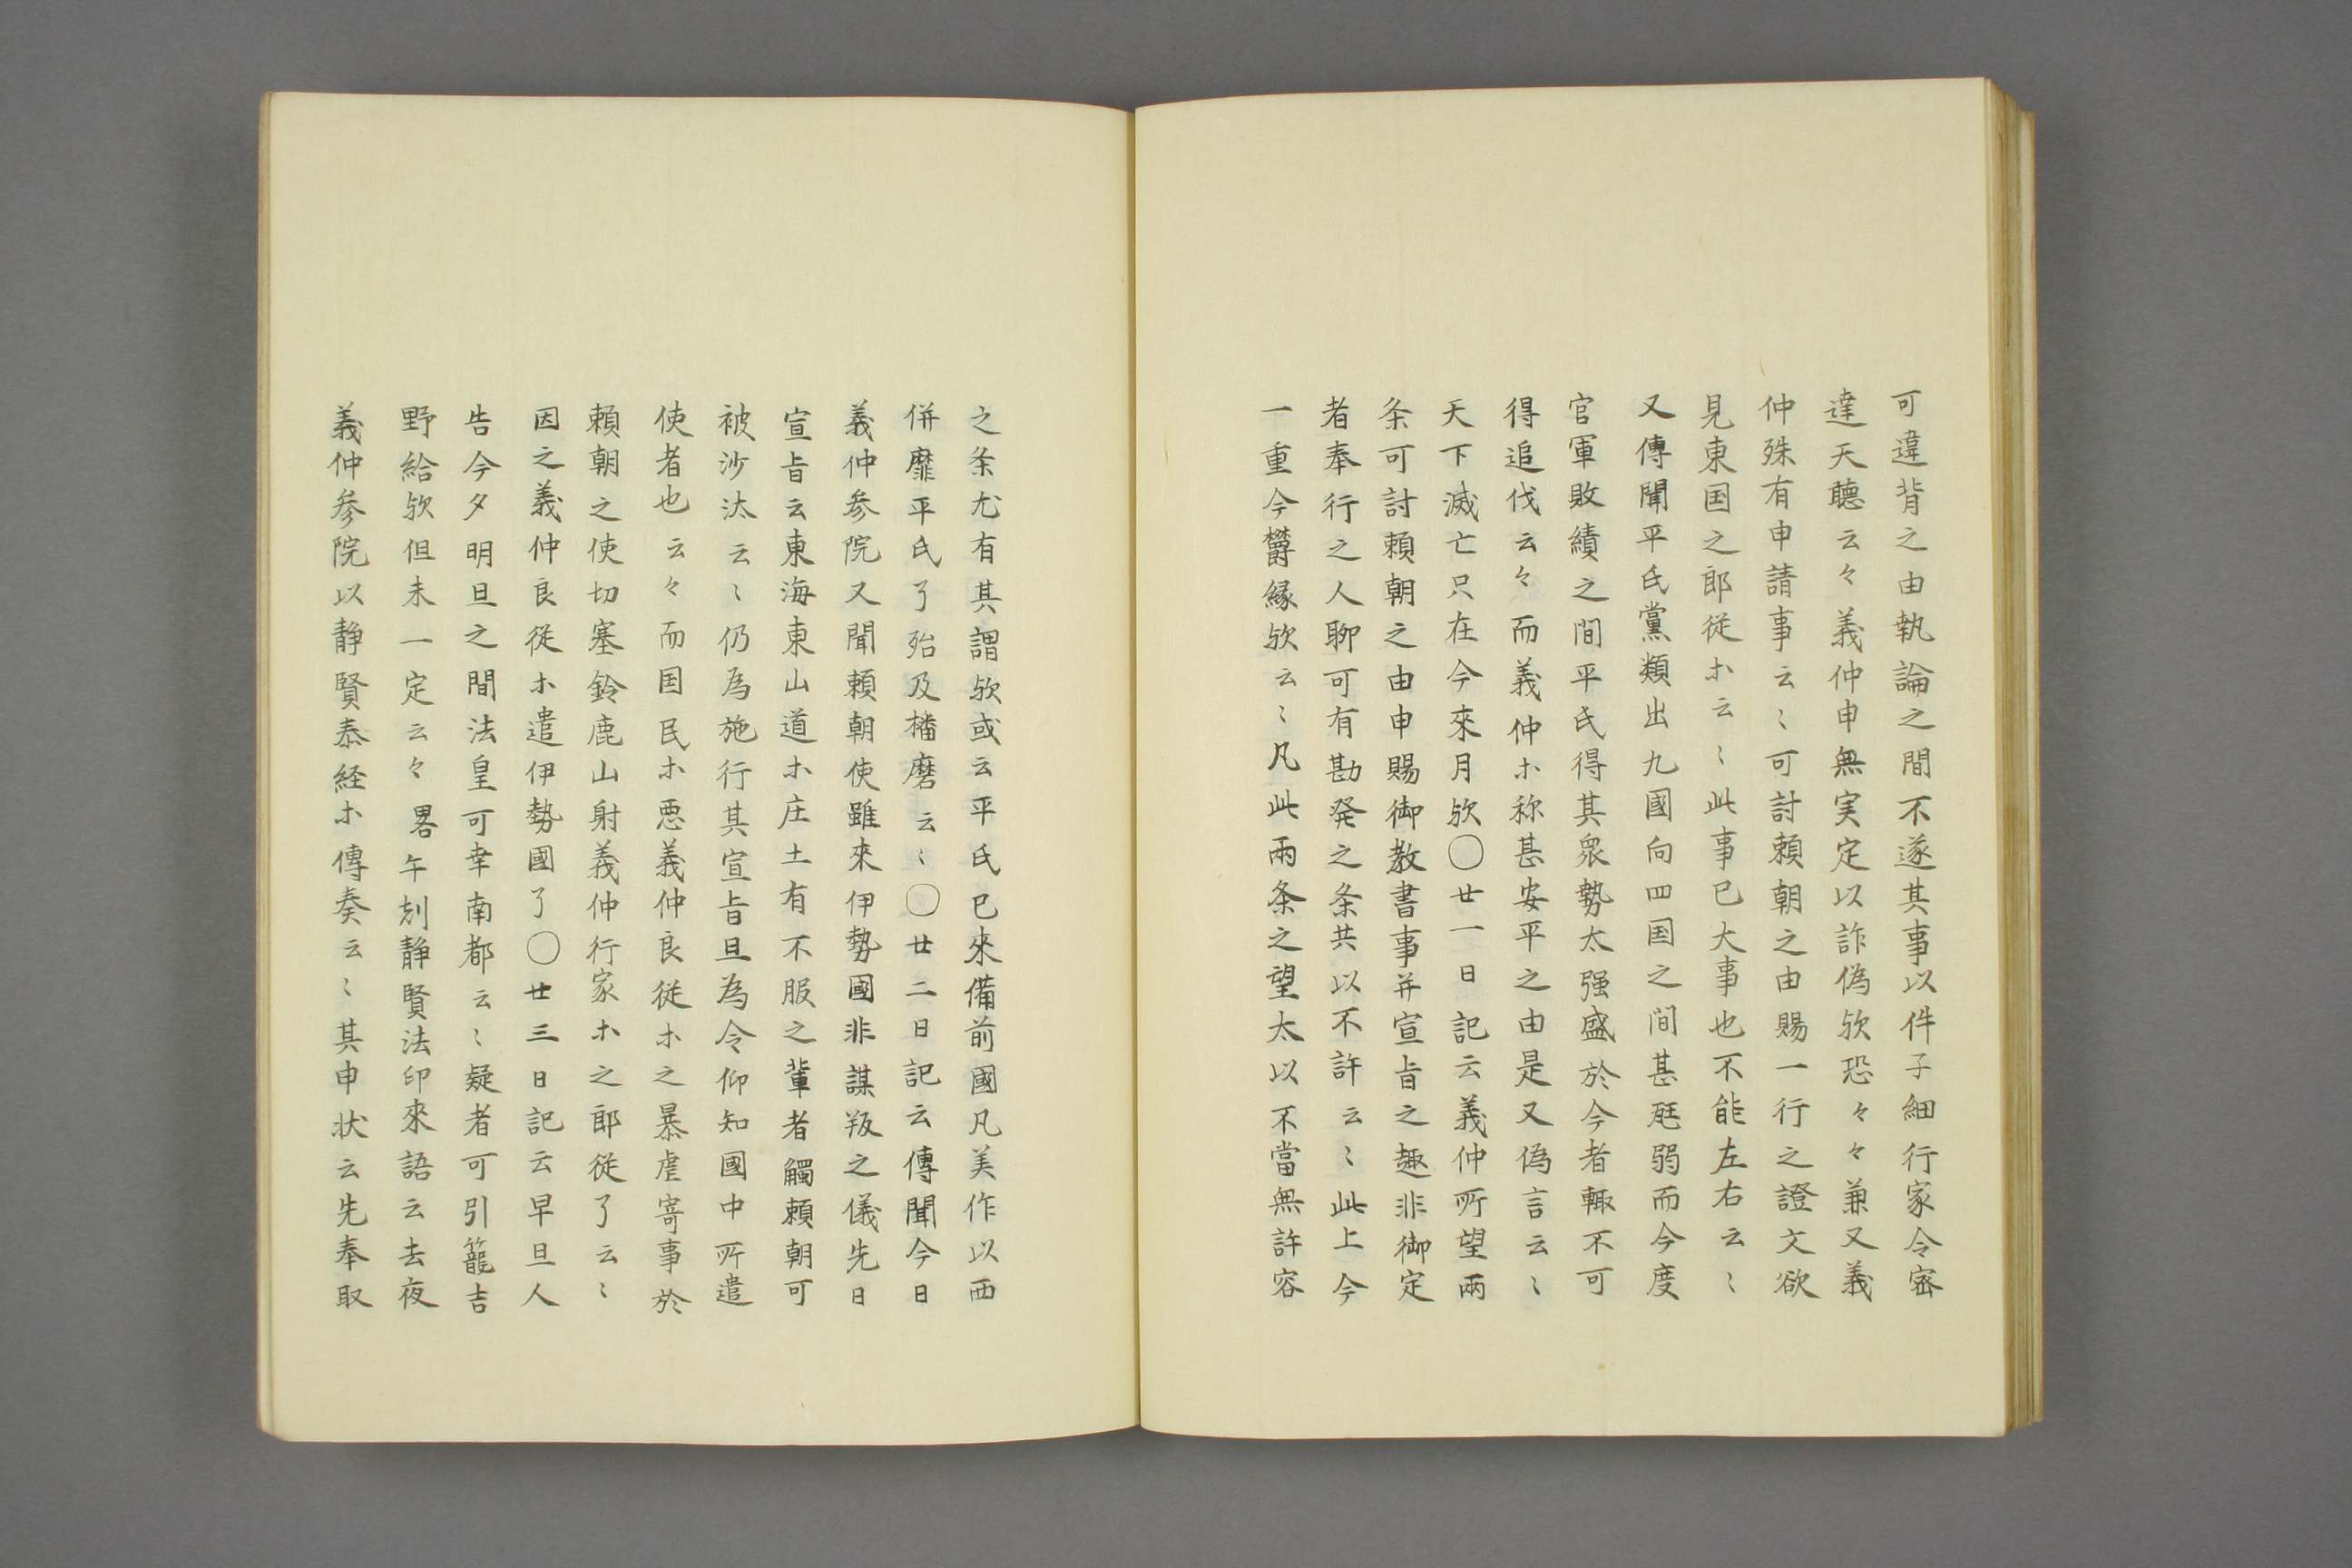 可違背之由執論之間不遂其事以件子細行家令密
達天聽云々義仲申無実定以詐偽欤恐々々兼又義
仲殊有申請事云〻可討頼朝之由賜一行之證文欲
見東国之郎従ホ云〻此事已大事也不能左右云〻
又傳聞平氏黨類出九國向四国之間甚尫弱而今度
官軍敗績之間平氏得其衆勢太强盛於今者輙不可
得追伐云々而義仲ホ称甚安平之由是又偽言云〻
天下滅亡只在今來月欤〇廿一日記云義仲所望兩
条可討頼朝之由申賜御教書事并宣旨之趣非御定
者奉行之人聊可有勘発之条共以不許云〻此上今
一重令欝縁欤云〻凡此兩条之望太以不當無許容
之条尤有其謂欤或云平氏已來備前國凡美作以西
併靡平氏了殆及播磨云〻〇廿二日記云傳聞今日
義仲参院又聞頼朝使雖來伊勢國非謀叛之儀先日
宣旨云東海東山道ホ庄土有不服之輩者觸頼朝可
被沙汰云〻仍為施行其宣旨且為令仰知國中所遣
使者也云々而国民ホ悪義仲良従ホ之暴虐寄事於
頼朝之使切塞鈴鹿山射義仲行家ホ之郎従了云〻
因之義仲良従ホ遣伊勢國了〇廿三日記云早旦人
告今夕明旦之間法皇可幸南都云〻疑者可引籠吉
野給欤但未一定云々畧午刻静賢法印來語云去夜
義仲参院以静賢泰経ホ傳奏云〻其申状云先奉取